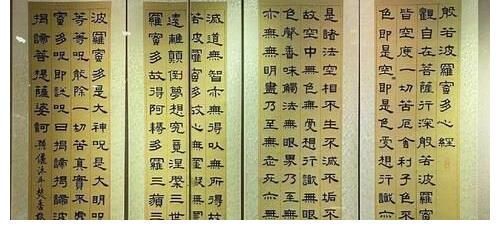 般若波羅蜜多心經
觀自在菩薩行深般若波羅蜜
皆空度一切苦厄舍利子色不
色即是空空即是色受想行識亦
是諸法空相不生不滅不垢不
故空中無色無受想行識無眼
色聲香味觸法無眼界乃至無
亦無無明盡乃至無老死亦
滅道無智亦無得以無所得故
若波羅蜜多故心無罣礙無
遠離顛倒夢想究竟涅槃三世
羅蜜多故得阿耨多羅三藐三
波羅蜜多是大神咒是大明咒
等等咒能除一切苦真實不虛
蜜多咒即說咒曰揭諦揭諦波
揭諦菩提薩婆訶